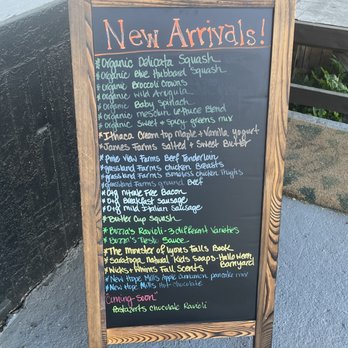 New Arrivals!
* Organic Delicata Squash
* Organic Blue Hubbard Squash
* Organic Broccoli Crowns
* Organic Wild Arugula
* Organic Baby Spinach
* Organic Mesclun Lettuce Blend
* Organic Sweet + Spicy greens mix
* Ithaca Cream top Maple + Vanilla Yogurt
* James Farms Salted + Sweet Butter
* Pine View Farms Beef Tenderloin
* Grassland Farms Chicken Breasts
* Grassland Farms Boneless Chicken Thighs
* Grassland Farms ground Beef
* Org Nitrate Free Bacon
* Org Breakfast Sausage
* Org Mild Italian Sausage
* Butter Cup Squash
* Bozza's Ravioli - 3 different Varieties
* Sauce
* The Monster of Lyons Falls Book
* Saratoga Natural Kids Soaps - Halloween, Barnyard
* Nicky's + Mimi's Fall Scents
* New Hope Mills Apple Cinnamon pancake mix
* New Hope Mills Hot Chocolate
"Coming Soon"
Chocolate Ravioli